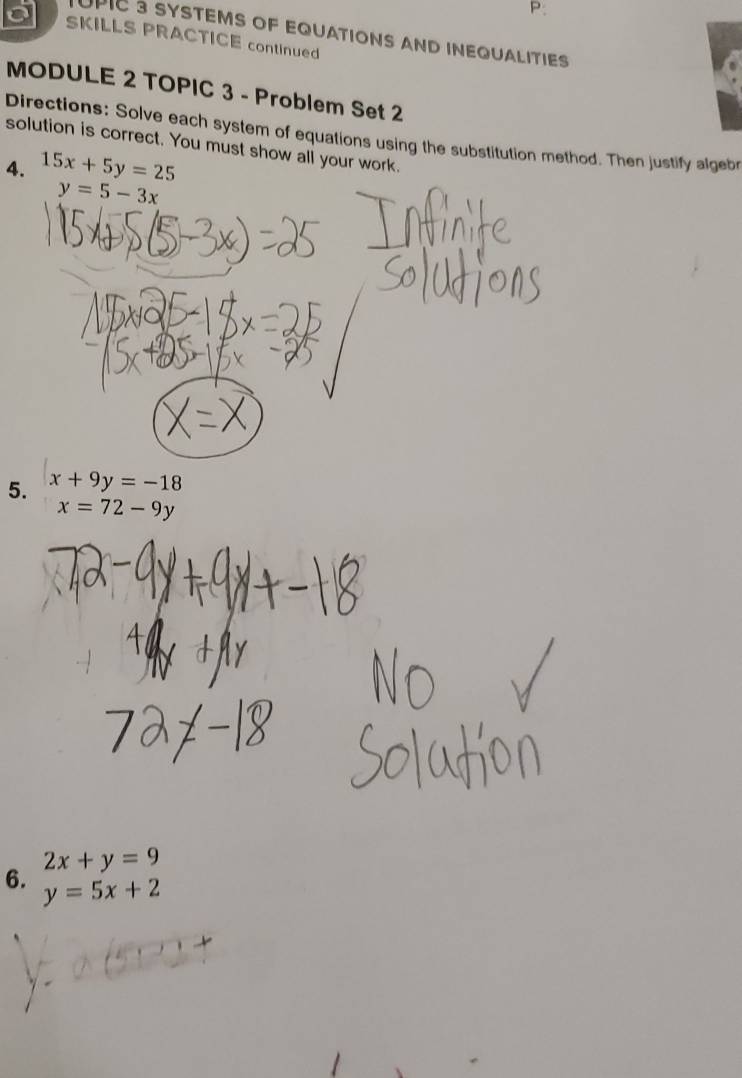 TOPIC 3 SYSTEMS OF EQUATIONS AND INEQUALITIES
P:
SKILLS PRACTICE continued
MODULE 2 TOPIC 3 - Problem Set 2
Directions: Solve each system of equations using the substitution method. Then justify algebr
solution is correct. You must show all your work.
4. 15x + 5y = 25
y = 5 - 3x
15x+5(5-3x)=25
Infinite
solutions
15x+25-15x=25
-15x+25-15x -25
x=x
5. x + 9y = -18
x = 72 - 9y
72-9y+9y+-18
+9y +9y
72≠-18
No
Solution
6. 2x + y = 9
y = 5x + 2